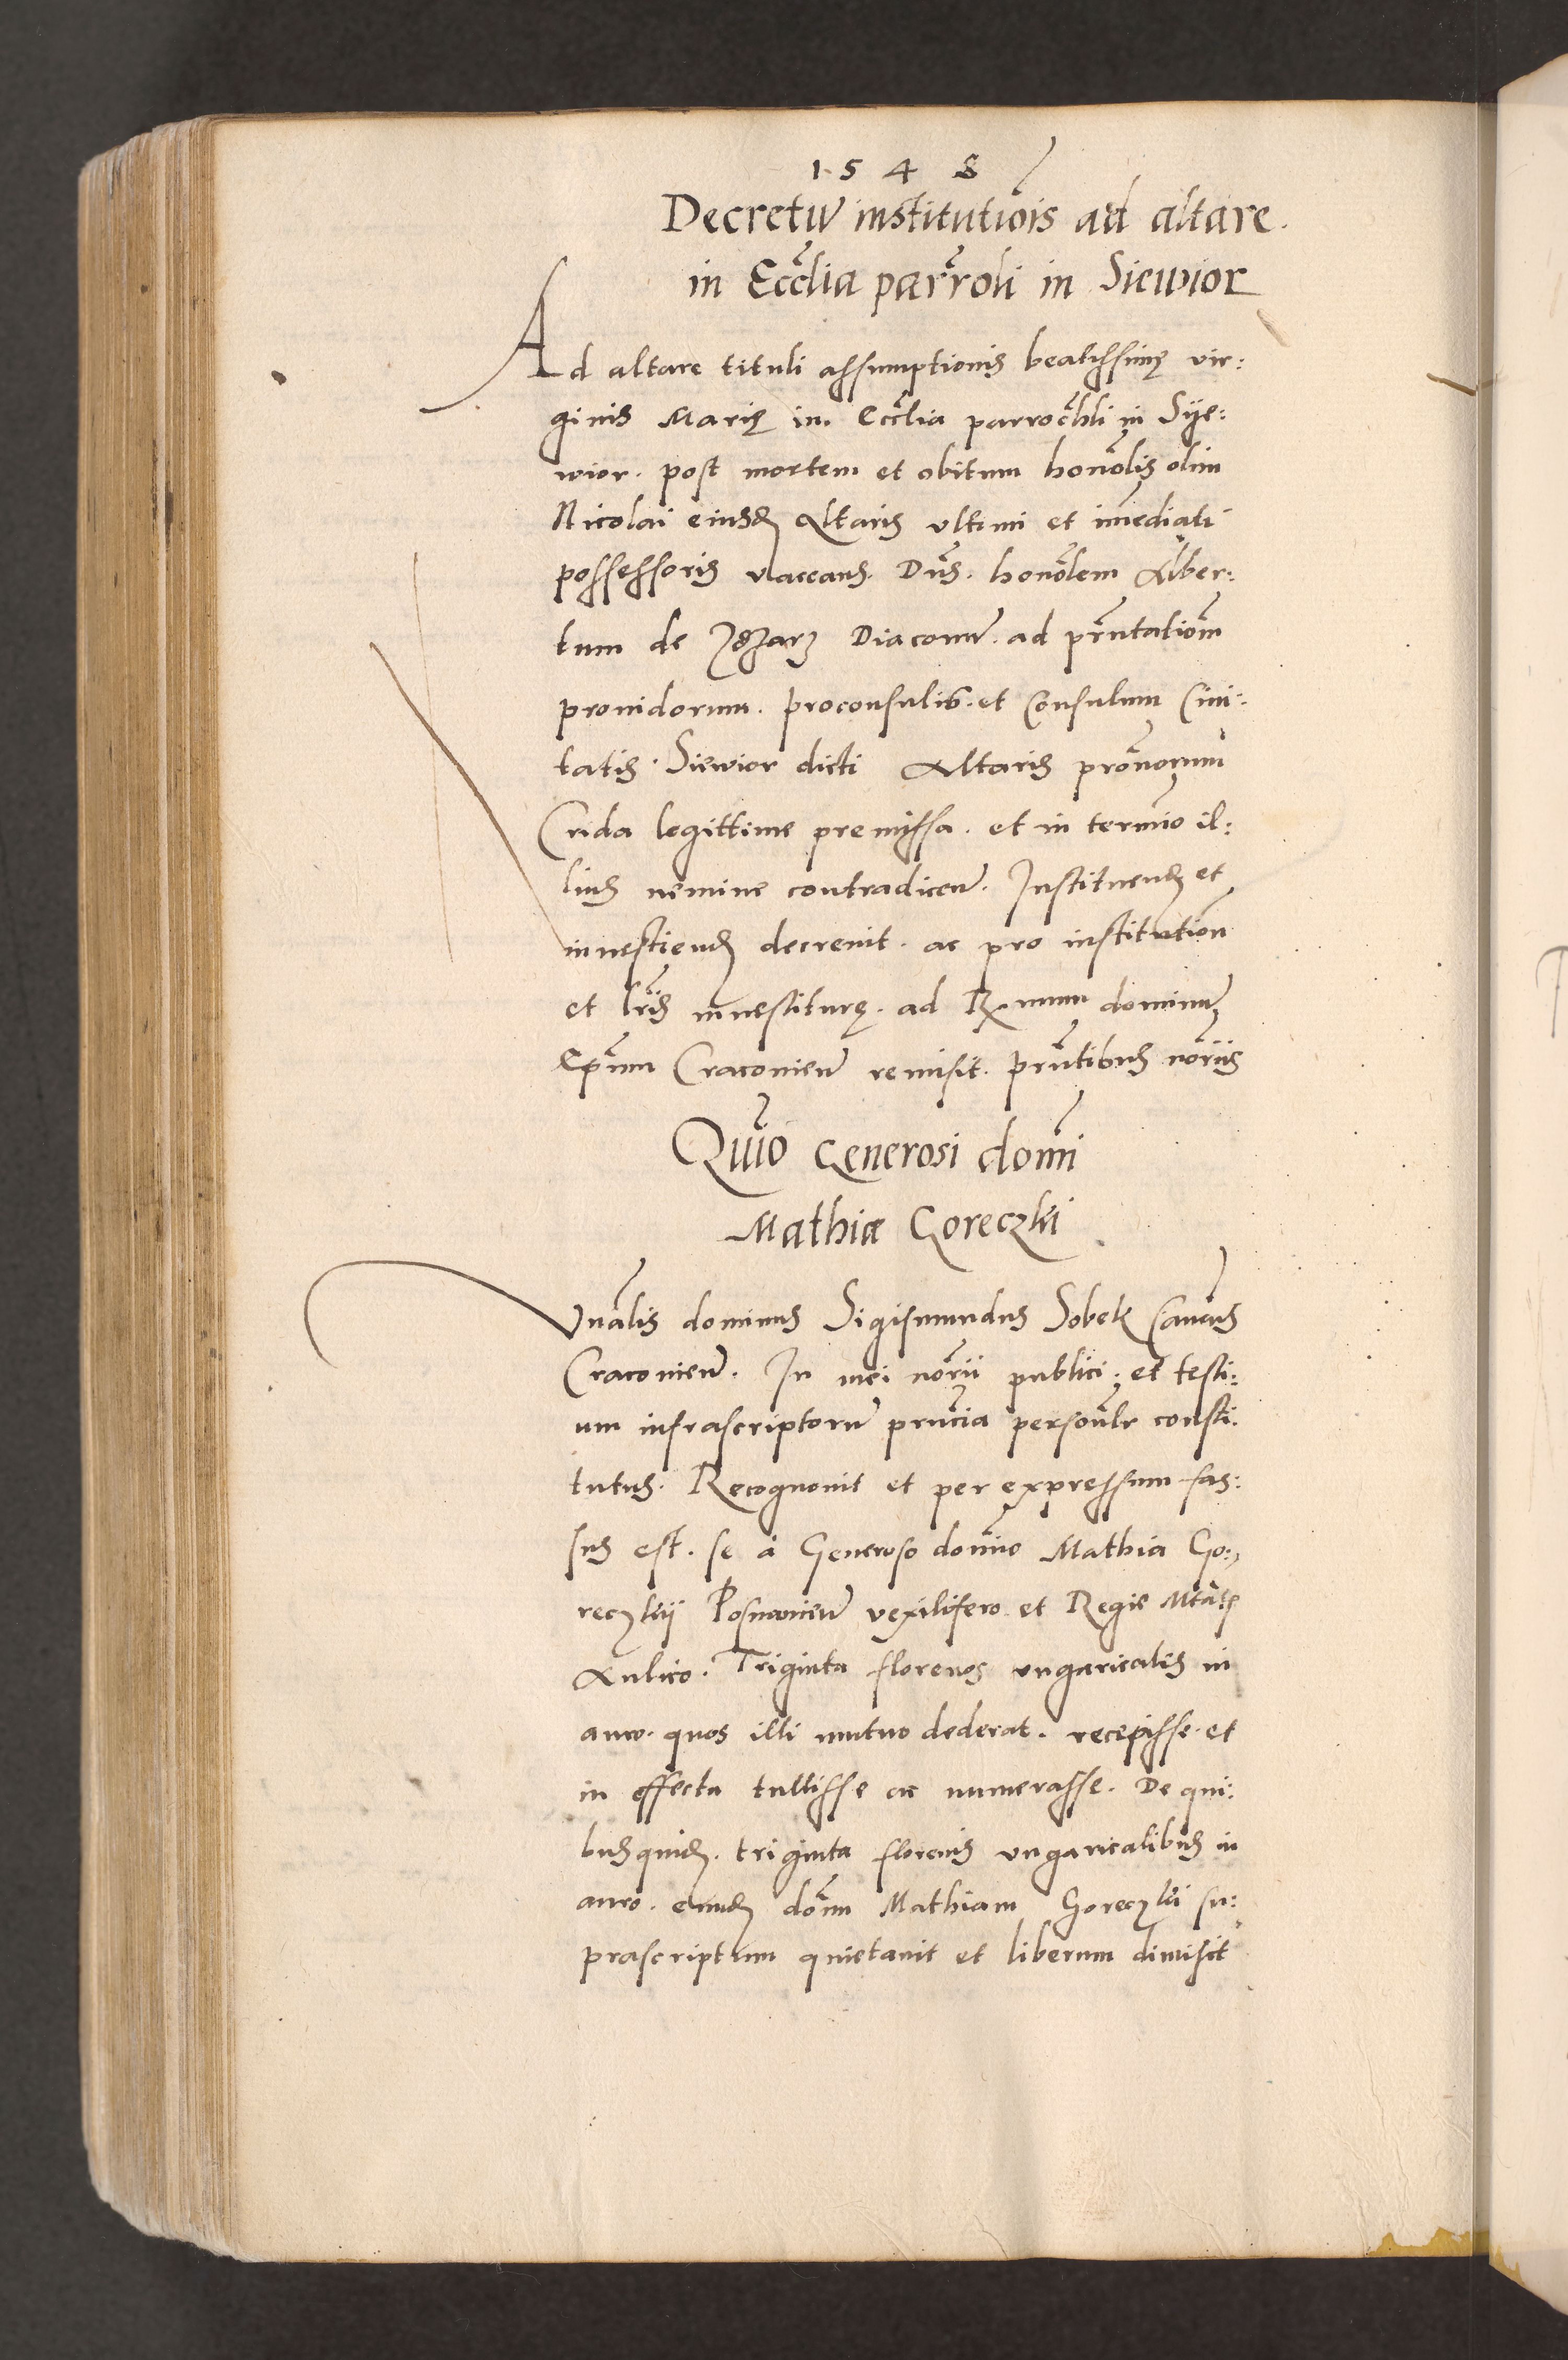 1548
Decretũ institutiõis ad altare
in Eccl̃ia parr̃oli in Siewior
Ad altare tituli assumptionis beatissimę vir:
ginis Marię in Eccl̃ia parroch̃li in Syie:
wior. post mortem et obitum honol̃is olim
Nicolai eiusd̃ Altaris ultimi et im̃ediati
possessoris vaccans. Dñs. honol̃em Alber:
tum de Diaconũ. ad pñtatiom̃
prouidorum. proconsulis. et Consulum Ciui:
tatis. Siewior dicti Altaris prõnorum
Crida legittime premissa. et in termĩo il:
lius nemine contradiceñ. Instituend̃ et
inuestiend̃ decreuit. ac pro institutioñ
et lr̃is inuestiturę. ad R̃mum dominũ
Ep̃um Cracouieñ remisit. pñtibus nor̃iis
Quĩo Generosi domĩ
Mathiæ Goreczki
Vnãlis dominus Sigismundus Sobek Canc̃us
Cracouieñ. In mei nor̃ii publici. et testi:
um infrascriptorũ pñcia personl̃r consti:
tutus. Recognouit et per expressum fas:
sus est. se à Generoso domĩo Mathia Go:
reczkij Posnanieñ vexilifero et Regie Mtãtis
Aulico. Triginta florenos ungaricalis in
auro. quos illi mutuo dederat. recepisse. et
in effectu tullisse ac numerasse. De qui:
busquid̃. triginta florenis ungaricalibus in
auro. eund̃ dom̃ Mathiam Goreczki su:
prascriptum quietauit et liberum dimisit